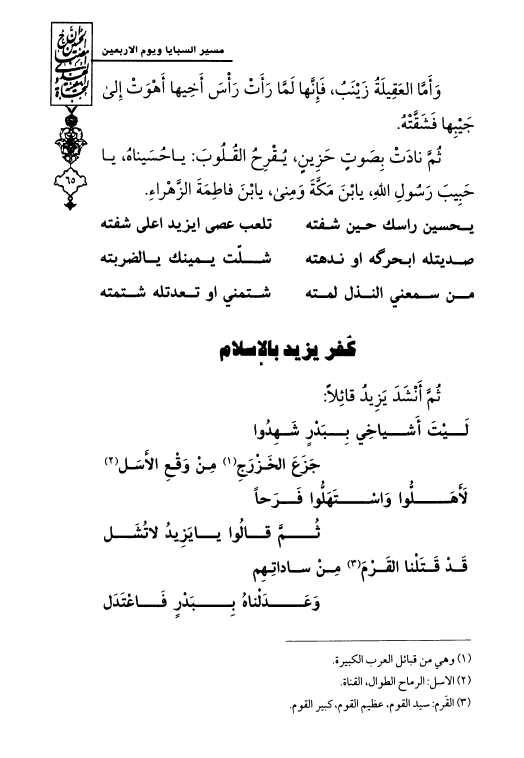 مسير السبايا ويوم الاربعين
٦٥
وَأَمَّا العَقِيلَةُ زَيْنَبُ، فَإِنَّها لَمَّا رَأَتْ رَأْسَ أَخِيها أَهْوَتْ إِلىٰ
جَيْبِها فَشَقَّتْهُ.
ثُمَّ نادَتْ بِصَوتٍ حَزِينٍ، يُقْرِحُ القُلُوبَ: ياحُسَيناه، يا
حَبِيبَ رَسُولِ اللهِ، يابْنَ مَكَّةَ وَمِنىٰ، يابْنَ فاطِمَةَ الزَّهْراءِ.
يـحسين راسك حـين شـفته تلعب عصى ايزيد اعلى شفته
صديتله ابحرگه او ندهته شـلّت يـمينك يـالضربته
مـن سـمعني النـذل لمـته شـتمني او تـعدتله شـتمته
كَفر يزيد بالإسلام
ثُمَّ أَنْشَدَ يَزِيدُ قائِلاً:
لَـيْتَ أَشْـياخِي بِـبَدْرٍ شَـهِدُوا
جَزَعَ الخَزْرَجِ(١) مِنْ وَقْعِ الأَسَل(٢)
لَأَهَـلُّوا وَاسْـتَهَلُّوا فَـرَحاً
ثُـمَّ قـالُوا يـايَزِيدُ لاتُشَـل
قَـدْ قَـتَلْنا القَرْمَ(٣) مِـنْ ساداتِـهِم
وَعَـدَلْناهُ بِـبَدْرٍ فَـاعْتَدَل
(١) وهي من قبائل العرب الكبيرة.
(٢) الاسل: الرماح الطوال، القناة.
(٣) القَرم: سيد القوم، عظيم القوم، كبير القوم.